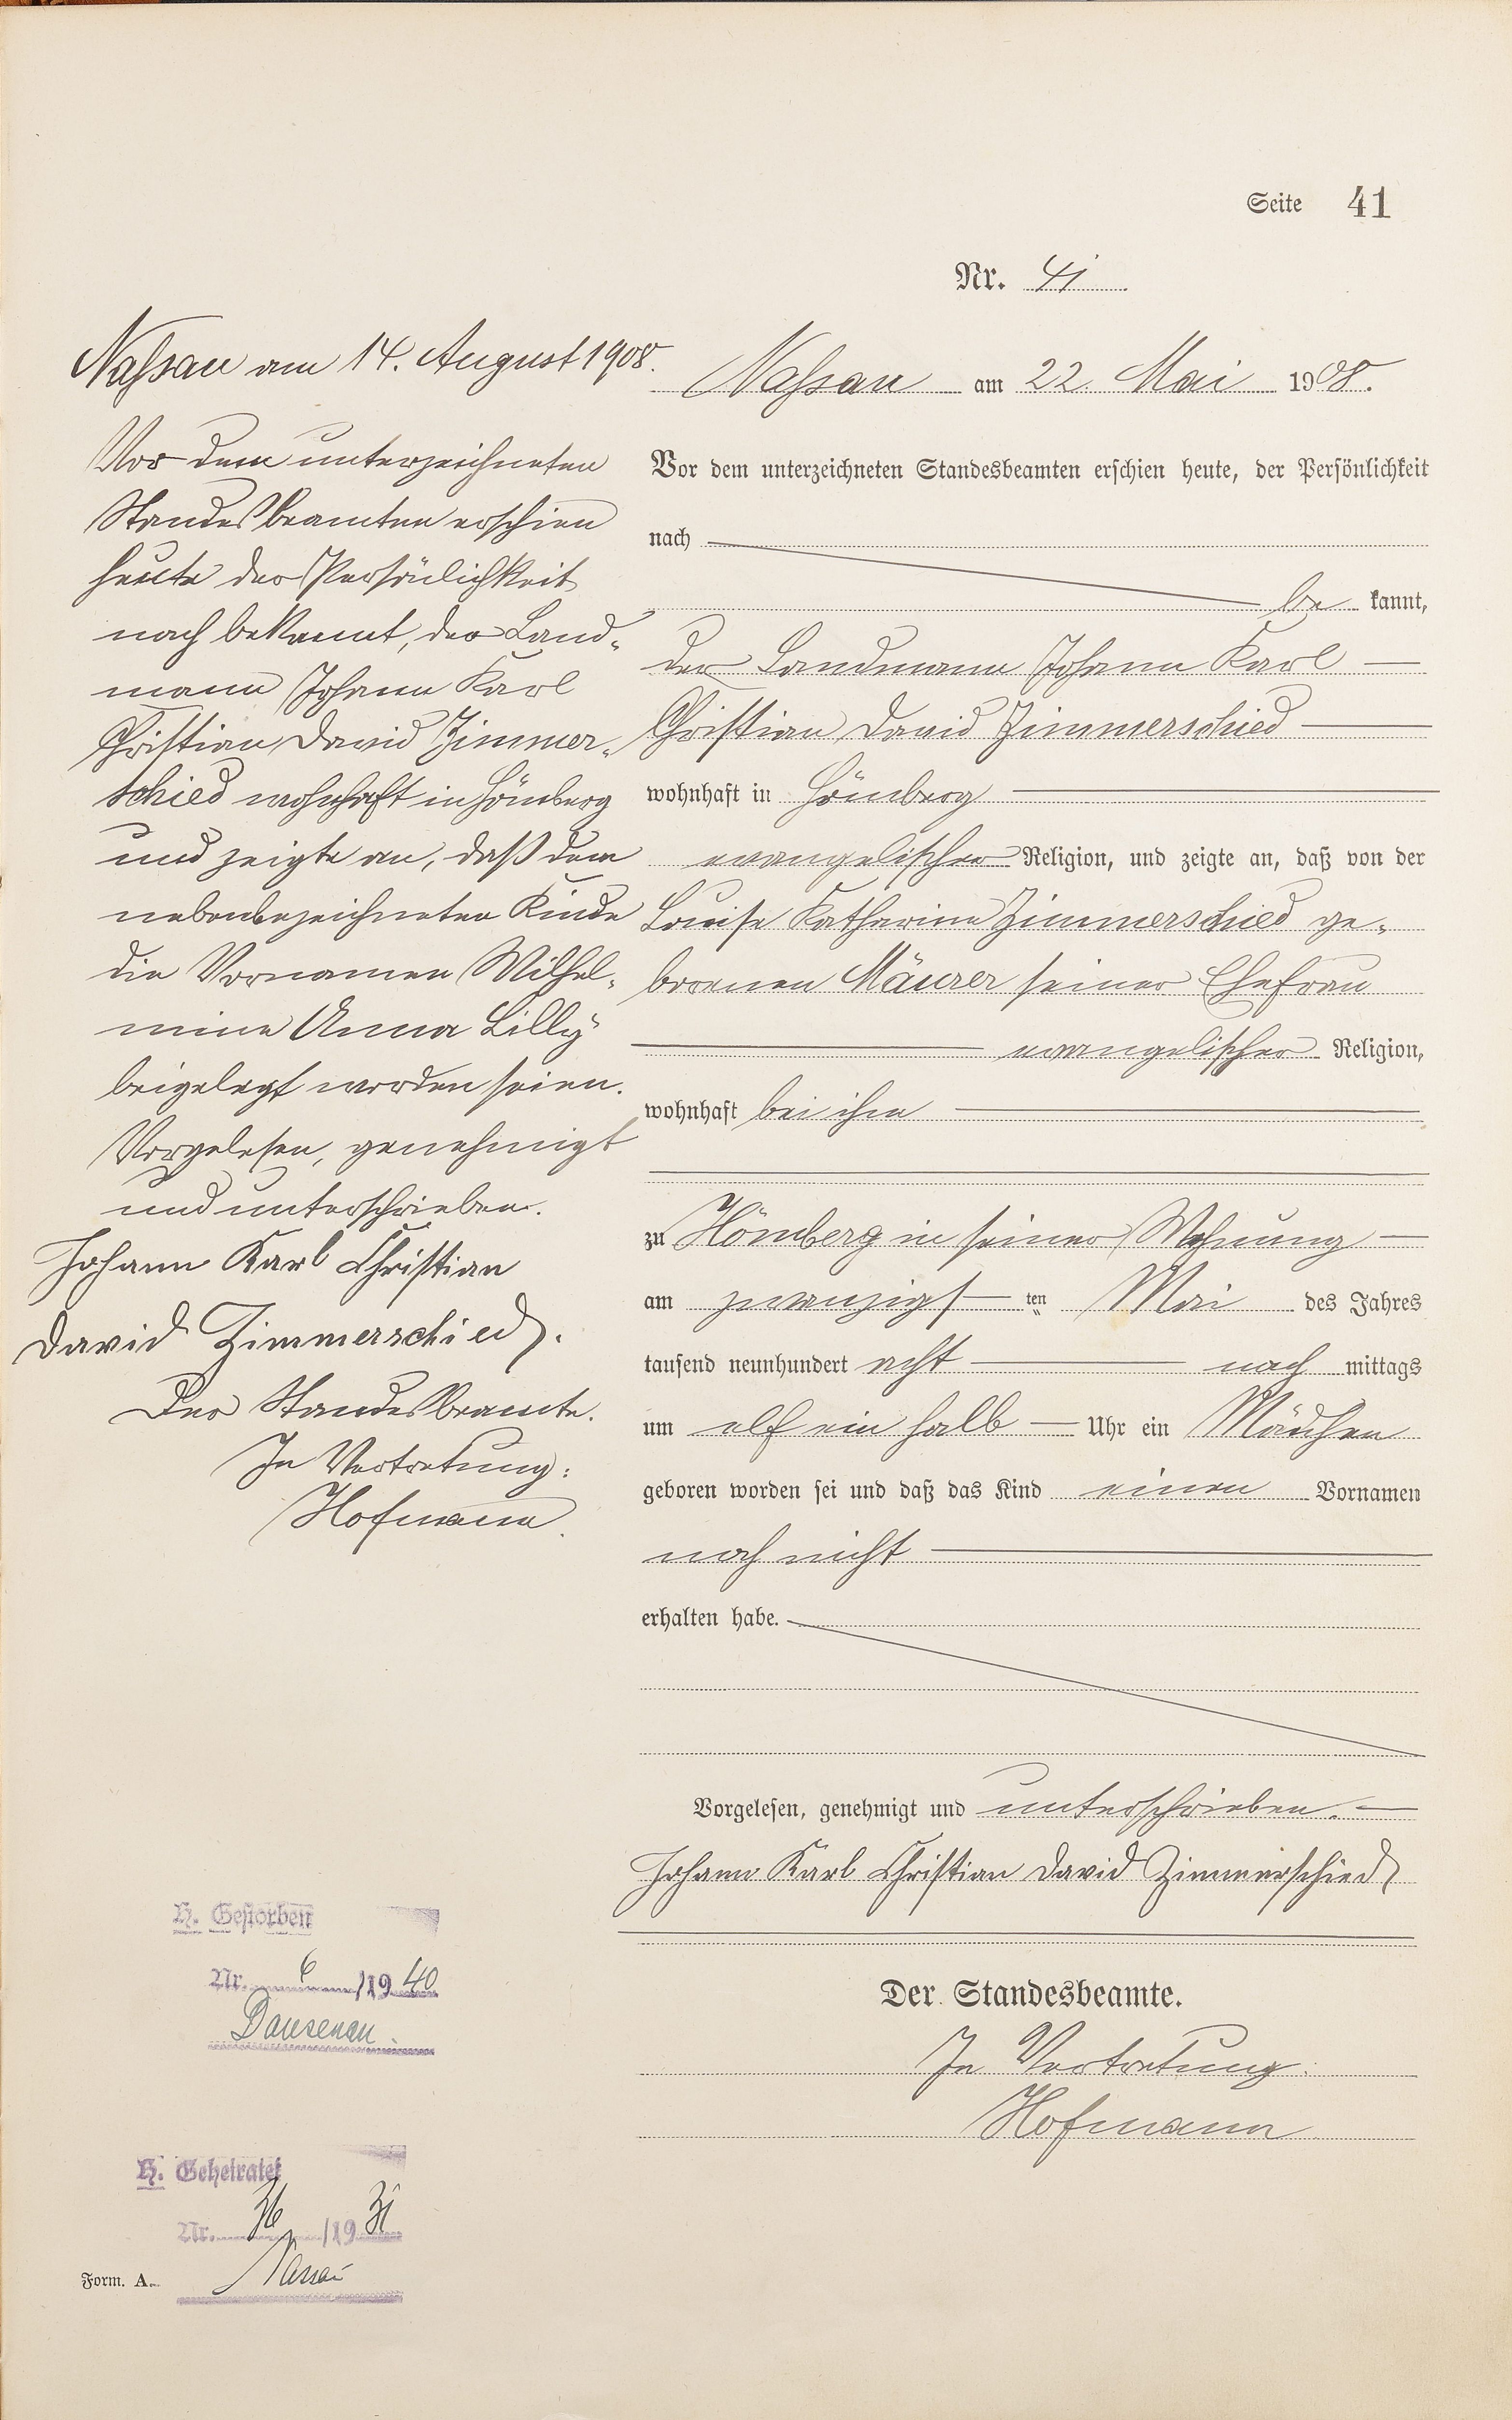 Seite 41
Nr. 41
Nassau am 14. August 1908.
Vor dem unterzeichneten
Standesbeamten erschien
heute der Persönlichkeit
nach bekannt, der Land-
mann Johann Karl
Christian David Zimmer-
schied wohnhaft in Hömberg
und zeigte an, daß dem
nebenbezeichneten Kinde
die Vornamen Wilhel-
mine Anna Lilly
beigelegt worden seien.
Vorgelesen, genehmigt
und unterschrieben.
Johann Karl Christian
David Zimmerschied.
Der Standesbeamte.
In Vertretung:
Hofmann.
Nassau am 22. Mai 1908.
Vor dem unterzeichneten Standesbeamten erschien heute, der Persönlichkeit
nach
be kannt,
der Landmann Johann Karl
Christian David Zimmerschied
wohnhaft in Hömberg
evangelischer Religion, und zeigte an, daß von der
Louise Katharine Zimmerschied ge-
borenen Mäurer seiner Ehefrau
evangelischer Religion,
wohnhaft bei ihm
zu Hömberg in seiner Wohnung
am zwanzigs ten Mai des Jahres
tausend neunhundert acht nach mittags
um elf ein halb Uhr ein Mädchen
geboren worden sei und daß das Kind einen Vornamen
noch nicht
erhalten habe.
Vorgelesen, genehmigt und unterschrieben.
Johann Karl Christian David Zimmerschied
Der Standesbeamte.
In Vertretung:
Hofmann
H. Gestorben
Nr. 6 /1940
Dausenau.
H. Geheiratet
Nr. 36 /1931
Nassau
Form. A.